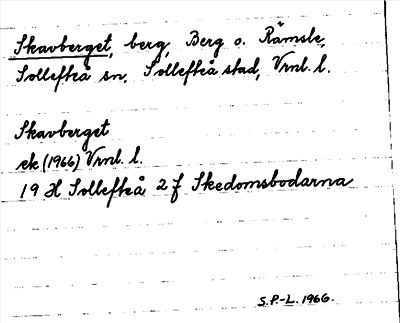 Skavberget, berg, Berg o. Rämsle,
Sollefteå sn, Sollefteå stad, Vrnl. l.
Skavberget
ek (1966) Vrnl. l.
19 H Sollefteå 2 f Skedomsbodarna
S.P.-L. 1966.